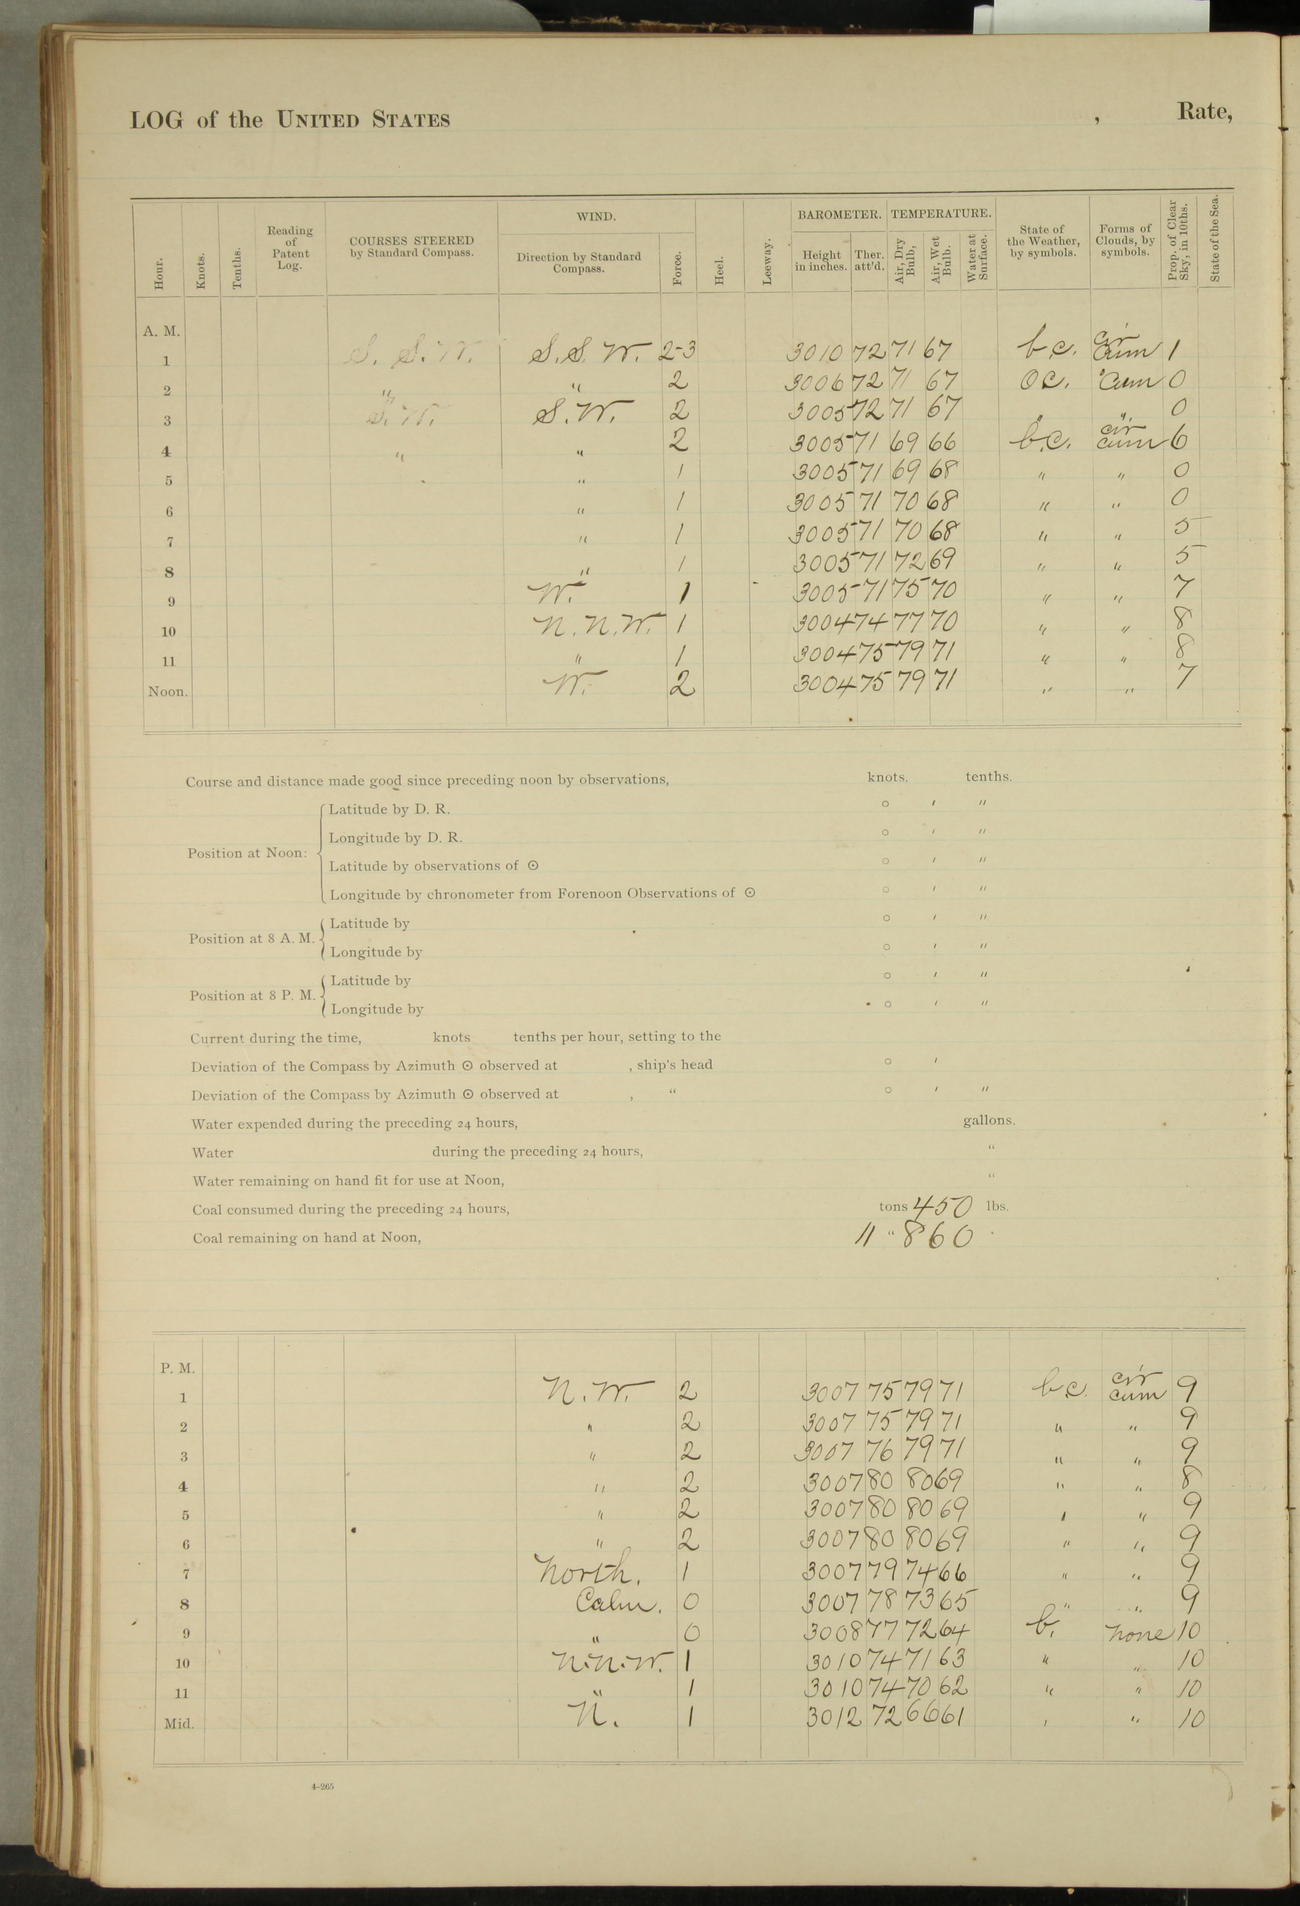 LOG of the UNITED STATES , Rate,
Hour. Knots. Tenths. Reading of Patent Log. COURSES STEERED by Standard Compass. WIND. Direction by Standard Compass. Force. Heel. Leeway. BAROMETER. Height in inches. Ther. att'd. TEMPERATURE. Air, Dry Bulb, Air, Wet Bulb. Water at Surface. State of the Weather, by symbols. Forms of Clouds, by symbols. Prop. of Clear Sky, in 10ths. State of the Sea.
A. M.
1 S. S. W. S. S. W. 2-3 3010 72 71 67 b c. cir cum 1
2 " " 2 3006 72 71 67 o c. cum 0
3 S. W. S. W. 2 3005 72 71 67 " " 0
4 " " 2 3005 71 69 66 b. c. cir cum 6
5 " 1 3005 71 69 68 " " 0
6 " 1 3005 71 70 68 " " 0
7 " 1 3005 71 70 68 " " 5
8 " 1 3005 71 72 69 " " 5
9 W. 1 3005 71 75 70 " " 7
10 N. N. W. 1 3004 74 77 70 " " 8
11 " 1 3004 75 79 71 " " 8
Noon. W. 2 3004 75 79 71 " " 7
Course and distance made good since preceding noon by observations, knots. tenths.
Position at Noon: Latitude by D. R. ° ′ ″
Longitude by D. R. ° ′ ″
Latitude by observations of ☉ ° ′ ″
Longitude by chronometer from Forenoon Observations of ☉ ° ′ ″
Position at 8 A. M. Latitude by ° ′ ″
Longitude by ° ′ ″
Position at 8 P. M. Latitude by ° ′ ″
Longitude by ° ′ ″
Current during the time, knots tenths per hour, setting to the
Deviation of the Compass by Azimuth ☉ observed at , ship's head ° ′
Deviation of the Compass by Azimuth ☉ observed at , " ° ′ ″
Water expended during the preceding 24 hours, gallons.
Water during the preceding 24 hours, "
Water remaining on hand fit for use at Noon, "
Coal consumed during the preceding 24 hours, tons 450 lbs.
Coal remaining on hand at Noon, 11 " 860
P. M.
1 N. W. 2 3007 75 79 71 b c. cir cum 9
2 " 2 3007 75 79 71 " " 9
3 " 2 3007 76 79 71 " " 9
4 " 2 3007 80 80 69 " " 8
5 " 2 3007 80 80 69 " " 9
6 " 2 3007 80 80 69 " " 9
7 North. 1 3007 79 74 66 " " 9
8 Calm. 0 3007 78 73 65 " " 9
9 " 0 3008 77 72 64 b. none 10
10 N. N. W. 1 3010 74 71 63 " " 10
11 " 1 3010 74 70 62 " " 10
Mid. N. 1 3012 72 66 61 " " 10
4-265